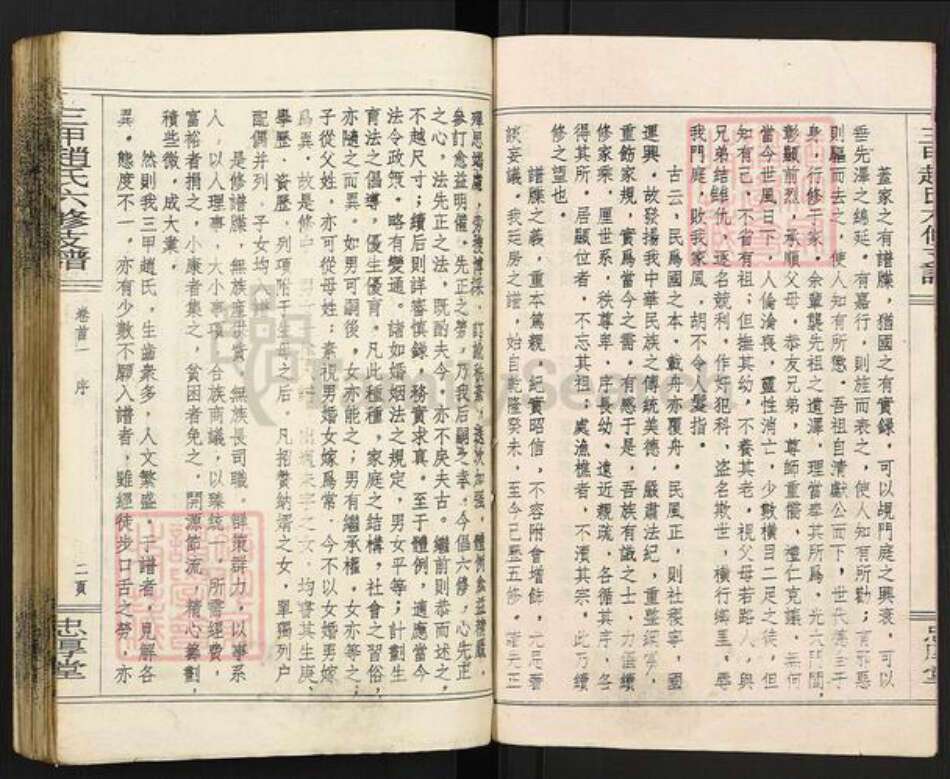 三甲趙氏六修支譜
蓋家之有譜牒，猶國之有實錄，可以覘門庭之興衰，可以
垂先澤之綿延。有嘉行，則旌而表之，使人知有所勸；有邪惡
則驅而去之，使人知有所懲。吾祖自清獻公而下，世代
身，行修于家。余輩襲先祖之遺澤，理當奉其所為，光大門閭，
彰顯前烈，承順父母，恭友兄弟，尊師重儒，禮仁克議。無何
當今世風日下，人倫淪喪，靈性消亡，少數橫目二足之徒，但
知有己，不省有祖；但撫其幼，不養其老，視父母若路人，與
兄弟結雠仇，逐名競利，作奸犯科，盜名欺世，橫行鄉里，辱
我門庭，敗我家風，胡不令人髮指。
古云，民為國之本，載舟亦覆舟，民風正，則社稷寧，國
運興。故發揚我中華民族之傳統美德，嚴肅法紀，重整
重飭家規，實為當今之需。有感于是，吾族有識之士，力倡續
修家乘，厘世系，秩尊卑，序長幼，遠近親疏，各循其序，各
得其所。居顯位者，不忘其祖；處漁樵者，不瀆其宗。此乃續
修之望也。
譜牒之義，重本篤親，紀實昭信，不容附會增飾，尤忌
談妄議。我廷房之譜，始自乾隆癸未，至今已歷五修。諸先正
殫思竭慮，旁搜博採，訂訛
參訂愈益明備。先正之勞，乃我后嗣之幸。今倡六修，心先正
之心，法先正之法，既酌夫今，亦不戾夫古。繼前則恭而述之，
不越尺寸；續后則詳審慎錄，務實求真。至于體例，適應當今
法令政策，略有變通。諸如婚姻法之規定，男女平等；計劃生
育法之倡導，優生優育。凡此種種，家庭之結構，社會之習俗，
亦隨之而異。如男可嗣後，女亦能之；男有繼承權，女亦等之，
子從父姓，亦可從母姓；素視男婚女嫁為常，今不以女婚男嫁
為異。故是修
學歷、資歷，列項附于生母之后。凡招贅納壻之女，單獨列戶
配偶并列，子女均
是修譜牒，無族產供費，無族長司職。群策群力，以事系
人，以人理事，大小事項，合族商議，以臻統一，所需經費，
富裕者捐之，小康者集之，貧困者免之，開源節流，精心籌劃，
積些微，成大業。
然則我三甲趙氏，生齒衆多，人文繁盛，于譜者，見解各
異。態度不一，亦有少數不願入譜者，雖經徒步口舌之勞，亦
三甲趙氏六修支譜
卷首一
序
二頁
忠厚堂